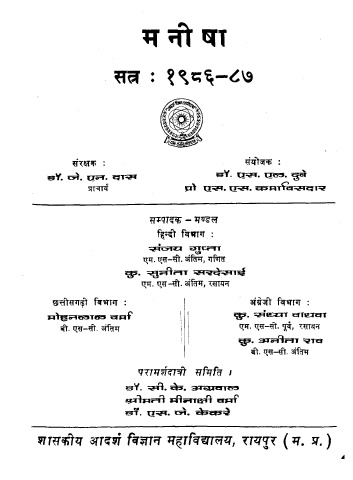 मनीषा
सत्र : १९८६-८७
संरक्षक :
डॉ. जे. एन. दास
प्राचार्य
संयोजक :
डॉ. एस. एल. दुबे
प्रो एस. एस. कमाविसदार
सम्पादक-मण्डल
हिन्दी विभाग :
संजय गुप्ता
एम. एस-सी. अंतिम, गणित
कु. सुनीता सरदेसाई
एम. एस-सी. अंतिम, रसायन
छत्तीसगढ़ी विभाग :
मोहनलाल वर्मा
बी. एस-सी. अंतिम
अंग्रेजी विभाग :
कु. संध्या वाधवा
एम. एस-सी. पूर्व, रसायन
कु. अनीता राव
बी. एस-सी. अंतिम
परामर्शदात्री समिति ।
डॉ. सी. के. अग्रवाल
श्रीमती मीनाक्षी वर्मा
डॉ. एस. जे. केकरे
शासकीय आदर्श विज्ञान महाविद्यालय, रायपुर (म. प्र.)